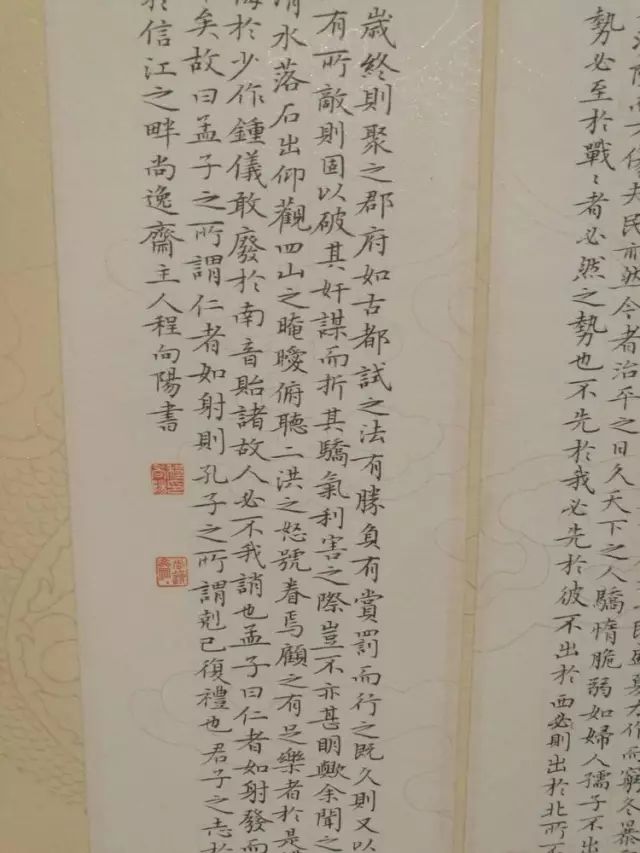 民盛夏力作而窮冬暴
夫民亦然今者治平之日久天下之人驕惰脆弱如婦人孺子不出
勢必至於戰〻者必然之勢也不先於我必先於彼不出於西必則出於北所不
歲終則聚之郡府如古都試之法有勝負有賞罰而行之既久則又以
有所敵則固以破其奸謀而折其驕氣利害之際豈不亦甚明歟余聞之
清水落石出仰觀四山之晻曖俯聽二洪之怒號眷焉顧之有足樂者於是
悔於少作鍾儀敢廢於南音貽諸故人必不我誚也孟子曰仁者如射發而
矣故曰孟子之所謂仁者如射則孔子之所謂剋己復禮也君子之志於
於信江之畔尚逸齋主人程向陽書